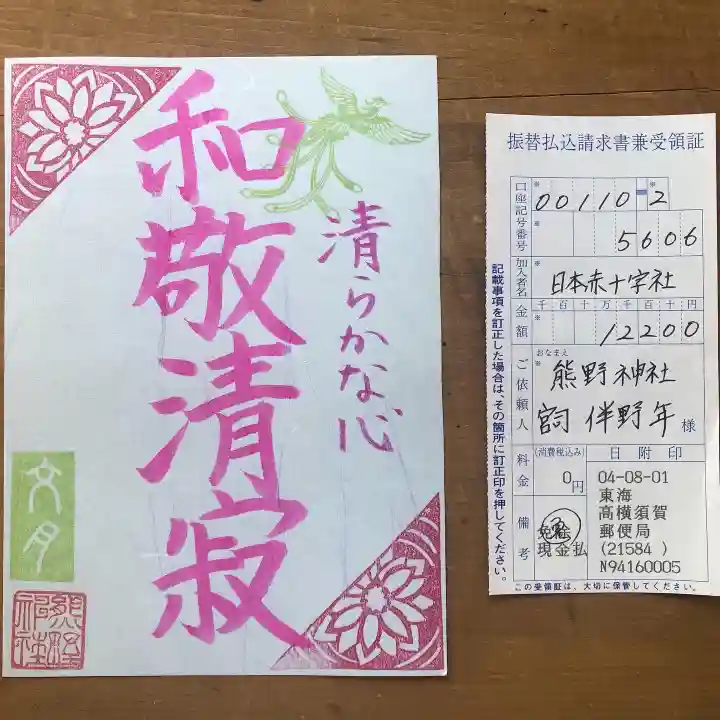 和敬清寂
清らかな心
文月
熊野神社
振替払込請求書兼受領証
口座記号番号
00110-2
5606
加入者名
日本赤十字社
金額
千百十万千百十円
12200
ご依頼人
おなまえ
熊野神社
宮司 伴野年様
料金
(消費税込み)
0円
備考
免除
現金払
日附印
04-08-01
東海
高横須賀
郵便局
(21584 )
N94160005
記載事項を訂正した場合は、その箇所に訂正印を押してください。
この受領証は、大切に保管してください。